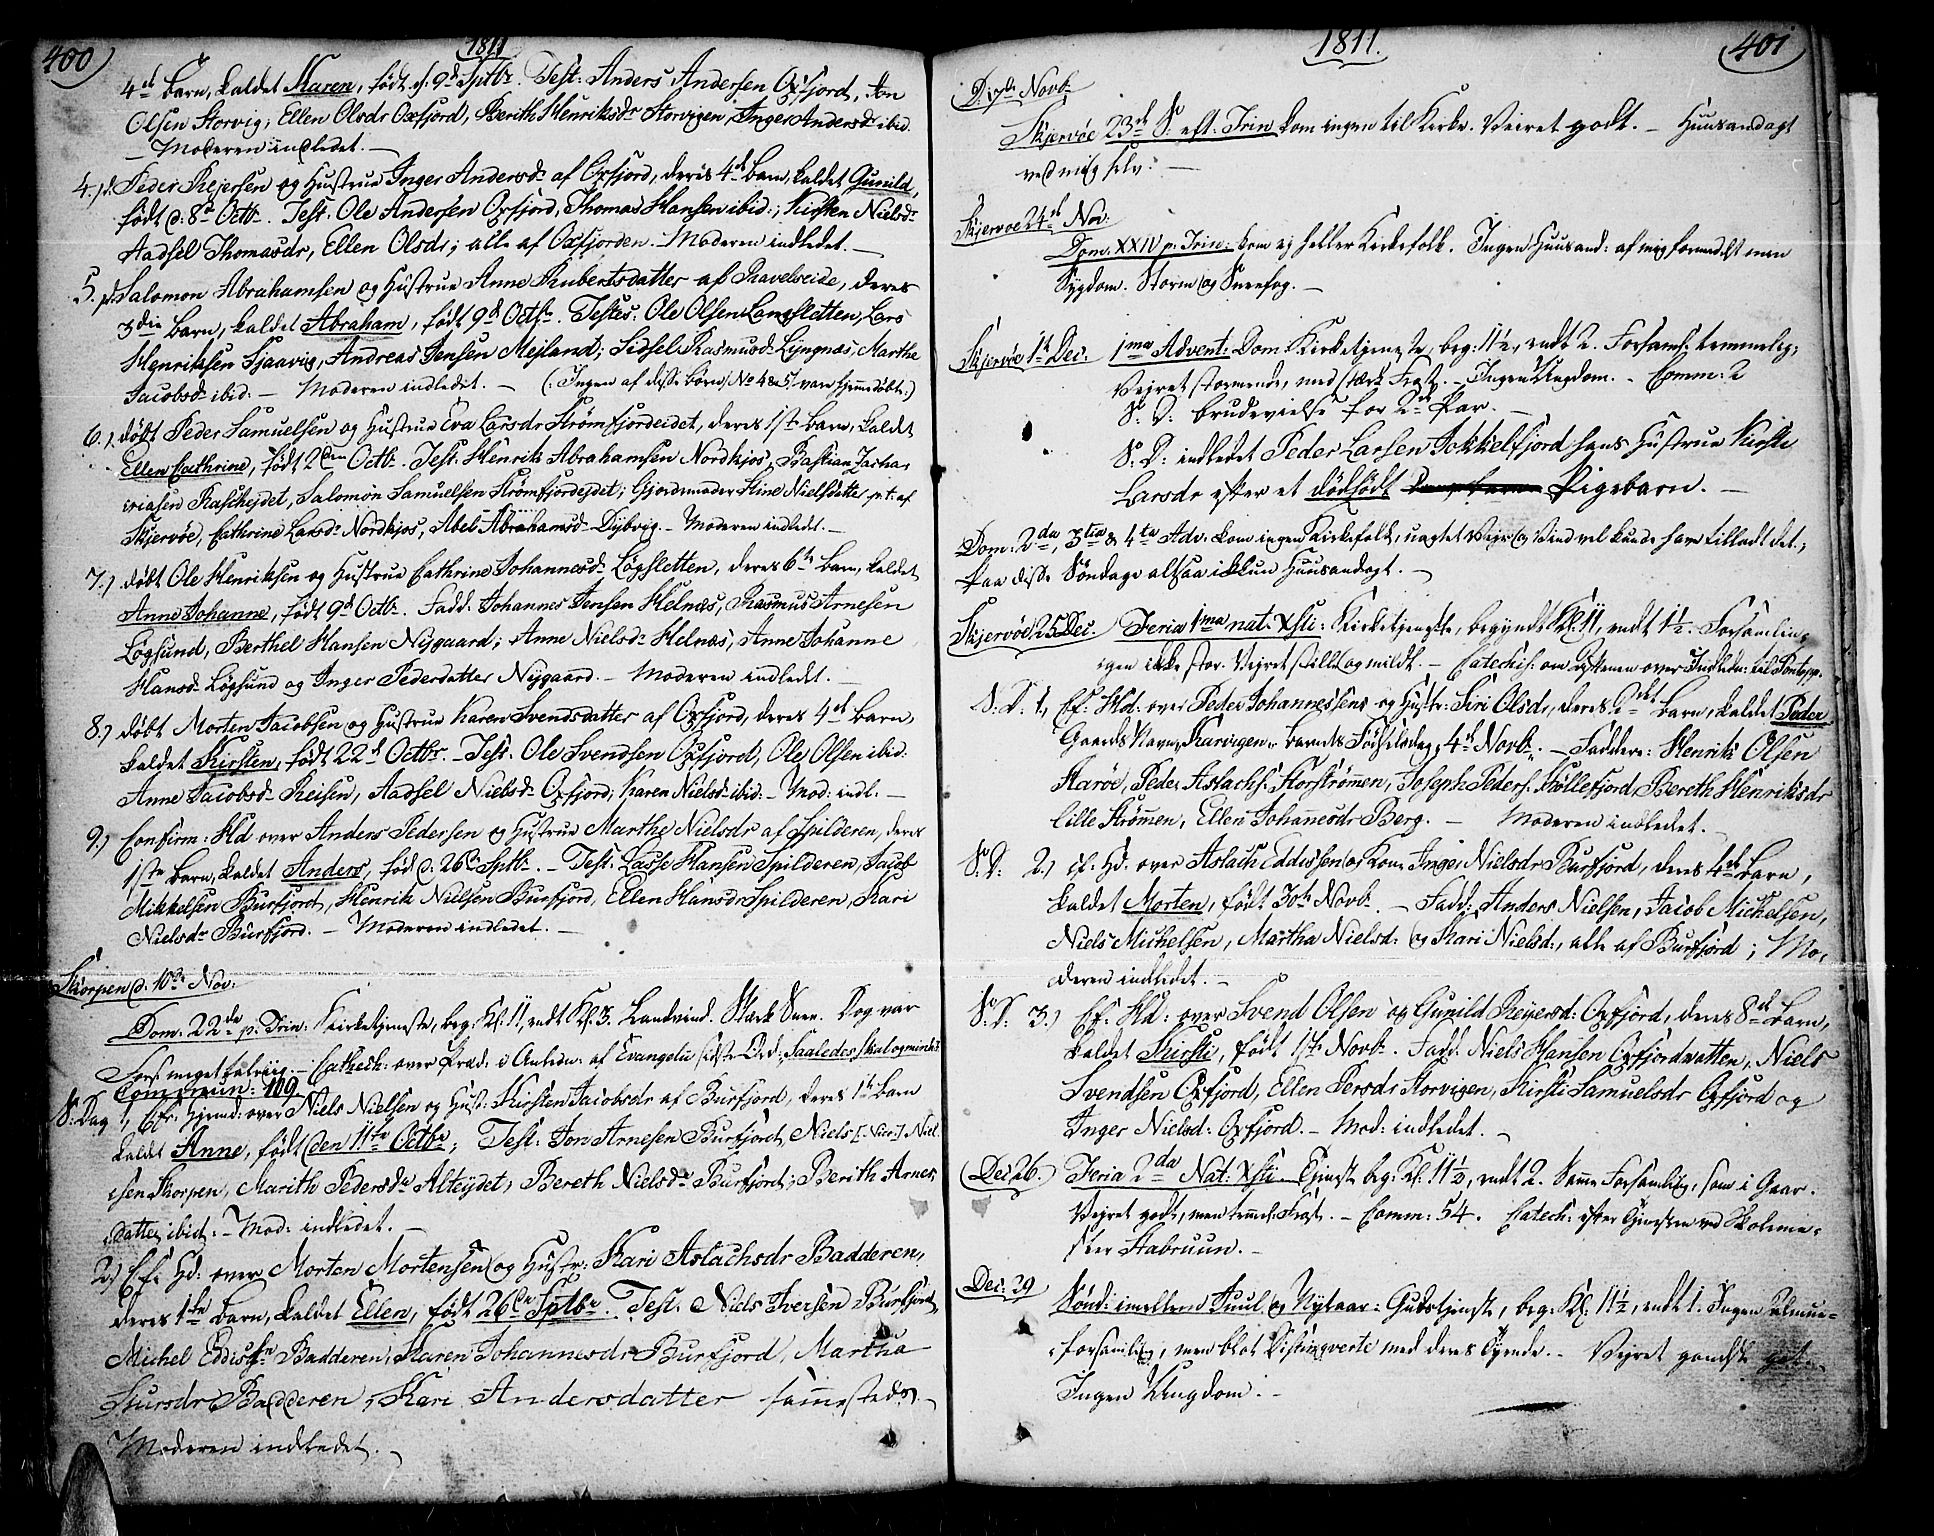 400
1811
4de Barn, kaldet Karen, født d. 9d Sptbr. Test: Anders Andersen Oxfjord, Jon
Olsen Storvig, Ellen Olsdr Oxfjord, Berith Henriksdr Storvigen, Inger Andersdr ibid.
– Moderen indledet. –
4.) d. Peder Rejersen og Hustrue Inger Andersdr af Oxfjord, deres 4de Barn, kaldet Gunild,
født d. 8de Octbr. Test. Ole Andersen Oxfjord, Thomas Hansen ibid:, Kirsten Nielsdr
Aadsel Thomasdr, Ellen Olsdr; alle af Oxfjorden. Moderen indledet. –
5. Salomon Abrahamsen og Hustrue Anne Hubertsdatter af Ravelseide, deres
3die Barn, kaldet Abraham, født 9d Octbr. Testes: Ole Olsen Langsletten, Lars
Henriksen Spaavig, Andreas Jensen Mejland; Sidsel Rasmusdr Lyngnæs, Marthe
Jacobsdr ibid: – Moderen indledet. – (: Ingen af disse Børn No 4 & 5 vare hjemmedøbt:)
6.) døbt Peder Samuelsen og Hustrue Eva Larsdr Strømfjordeidet, deres 1ste Barn, kaldet
Ellen Cathrine, født 2den Octbr. Test. Henrik Abrahamsen Nordkjos, Bastian Zacha-
riasen Raschejdet, Salomon Samuelsen Strømfjordejdet; Gjordemoder Stine Nielsdatter p.t. af
Skjervøe, Cathrine Larsdr Nordkjos, Abel Abrahamsdr Dybvig. – Moderen indledet. –
7.) døbt Ole Henriksen og Hustrue Cathrine Johannesdr Løgsletten, deres 6te Barn, kaldet
Anne Johanne, født 9d Octbr. Fadd. Johannes Jensen Helnæs, Rasmus Arnesen
Løgsund, Berthel Hansen Nygaard; Anne Nielsdr Helnæs, Anne Johanne
Hansdr Løgsund og Inger Pedersdatter Nygaard. – Moderen indledet. –
8.) døbt Morten Jacobsen og Hustrue Karen Svendsdatter af Oxfjord, deres 4de Barn,
kaldet Kirsten, født 22d Octbr. – Test. Ole Svendsen Oxfjord, Ole Olsen ibid:
Anne Jacobsdr Reisen, Aadsel Nielsdr Oxfjord, Karen Nielsdr ibid: – Mod: indl: –
9.) Confirm: Hd over Anders Pedersen og Hustrue Marthe Nielsdr af Spilderen, deres
1ste Barn, kaldet Anders, fød d. 26de Sptbr. – Test. Lasse Hansen Spilderen, Jacob
Mikkelsen Burfjord, Henrik Nielsen Burfjord, Ellen Hansdr Spilderen, Kari
Nielsdr Burfjord. – Moderen indledet. –
Skorpen d. 10de Nov:
Dom. 22da p. Trin: Kirketjeneste, beg: Kl. 11, endt Kl. 3. Landvind. Stærk Snee. Dog var
Fors: meget talriig. – Cathech: over Præd. i Anledn: af Evangelii sidste Ord: Saaledes skal og min &c
Commun: 109
S: Dag 1, Cf: Hjemd: over Niels Nielsen og Hust: Kirsten Jacobsdr af Burfjord, deres 1te Barn
kaldet Anne, født den 11te Octbr; Test. Jon Arnesen Burfjord, Niels [: Nicr:] Niel-
sen Skorpen, Marith Pedersdr Alteydet, Bereth Nielsdr Burfjord, Berith Arnes-
datter ibid: – Mod: indledet. –
2) Cf. Hd: over Morten Mortensen og Hustr: Kari Aslachsdr Badderen,
deres 1te Barn, kaldet Ellen, født 26de Sptbr. Test. Niels Iversen Burfjord,
Michel Eddissen Badderen, Karen Johannesdr Burfjord, Martha
Siursdr Badderen, Kari Andersdatter sammesteds. –
Moderen indledet. –
401
1811.
D. 17de Novb:
Skjervöe 23de S: eft: Trin kom ingen til Kirke. Veiret godt. – Huusandagt
ved mig selv. –
Skjervøe 24de Nov:
Dom: XXIV p. Trin: kom ej heller Kirkefolk. Ingen Huusand: af mig formedelst min
Sygdom. Storm og Sneefog. –
Skjervöe 1te Dec. 1ma Advent: Dom: Kirketjeneste, beg: 11½, endt 2. Forsaml: temmelig,
Vejret stormende, med stærk Frost. – Ingen Ungdom. – Comm: 2
S: D: Brudevielse for 2de Par. –
S: D: indledet Peder Larsen Jokkelfjord hans Hustrue Kirsti
Larsdr efter et dødfødt Pigebarn. –
Dom: 2da, 3tia & 4ta Adv. kom ingen Kirkefolk, uagtet Vejr og Vind vel kunde have tilladt det;
paa disse Søndage altsaa ikkun Huusandagt. –
Skjervöe 25 Dec. Feria 1ma nat. Xsti: Kirketjeneste, begyndt Kl. 11, endt 1½. Forsamlin-
gen ikke stor. Vejret stille og mildt. – Catechis: om Versene over Indledn: til Pontopp.
S. D. 1, Cf: Hd: over Peder Johannessens og Hustr: Siri Olsdr, deres 2det Barn, kaldet Peder
Gaards Navn, Karvigen, Barnets Fødselsdag, 4de Novbr. – Faddere: Henrik Olsen
Harøe, Peder Aslachs: Storstrømmen, Joseph Peders: Kollefjord, Bereth Henriksdr
lille Strømmen, Ellen Johanesdr Berg. – Moderen indledet. –
S: D: 2.) Cf. Hd. over Aslach Eddissen og Kone Inger Nielsdr Burfjord, deres 4de Barn,
kaldet Morten, født 30te Novbr. – Fadd: Anders Nielsen, Jacob Michelsen,
Niels Michelsen, Martha Nielsd: og Kari Nielsd:, alle af Burfjord; Mo-
deren indledet. –
S: D: 3.) Cf. Hd: over Svend Olsen og Gunild Rejersd: Oxfjord, deres 8de Barn,
kaldet Kirsti, født 1te Novbr. Fadd. Niels Hansen Oxfjordvatten, Niels
Svendsen Oxfjord, Ellen Persdr Storvigen, Kirsti Samuelsdr Oxfjord og
Inger Nielsd: Oxfjord. – Mod: indledet. –
Dec 26. Feria 2da Nat: Xsti – Tjeneste beg: Kl. 11½, endt 2. Samme Forsamling, som i Gaar.
Vejret godt, men temmel: Frost. – Comm: 54. Catech: efter Tjenesten ved Skolemes-
ster Stabruun. –
Dec: 29 Sønd: imellem Juul og Nytaar: Gudstjeneste, beg: Kl. 11½, endt 1. Ingen Almue-
forsamling, men blot Distingverte med deres Tyende. – Vejret gandske godt.
Ingen Ungdom. –